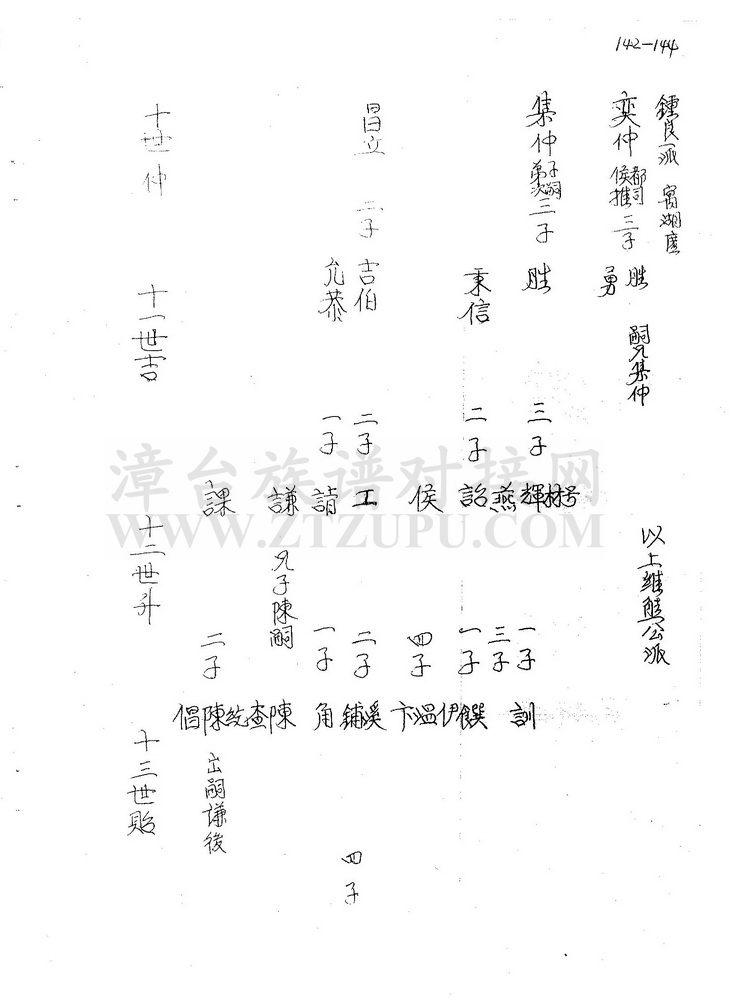 142-144
鍾良派 霄湖廬
奕仲 都司侯推 三子
胜 嗣兄集仲
勇
以上維熊公派
集仲 弟次子嗣 三子
胜 三子
秉信 二子
号
林
輝 一子
燕 三子
訓
詔 一子
饌
侯 四子
伊
温
卞
昌立 二子
吉伯 二子
允恭 一子
工 二子
溪
鋪 四子
請 一子
角
謙 兄子陳嗣
陳
課 二子
查
統
陳 出嗣謙後
倡
十世仲
十一世吉
十二世升
十三世貽
漳台族谱对接网
WWW.ZTZUPU.COM